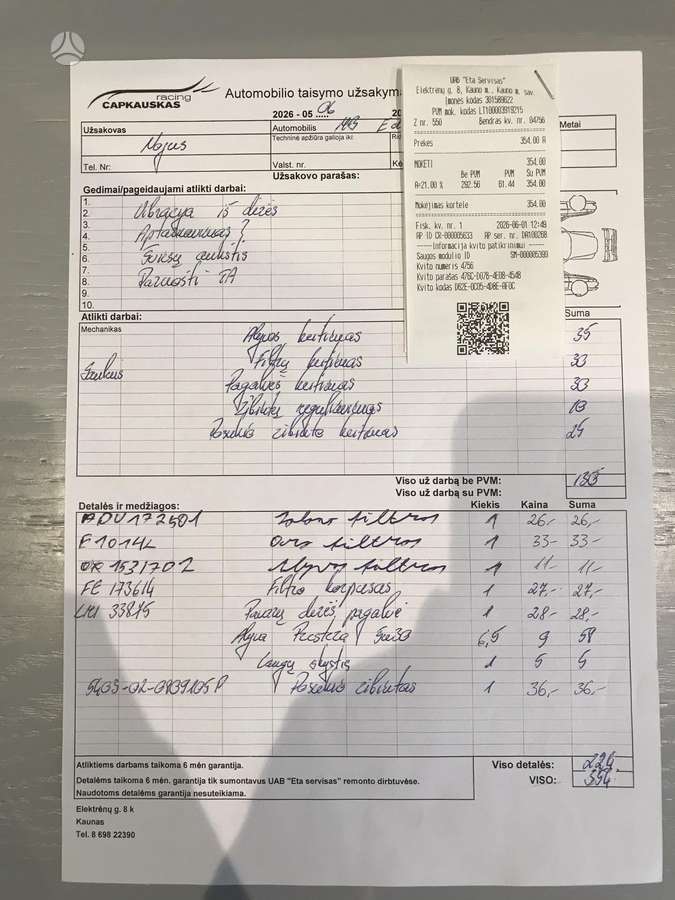 racing
CAPKAUSKAS
Automobilio taisymo užsakym
2026 - 05 06
Užsakovas
Nojus
Tel. Nr:
Automobilis
Techninė apžiūra galioja iki:
Valst. nr.
Metai
Užsakovo parašas:
Gedimai/pageidaujami atlikti darbai:
1.
2. Vibracija iš dėžės
3.
4. Aptarnavimas
5.
6.
7.
8. Paruošti TA
9.
10.
Atlikti darbai:
Suma
Mechanikas
Alyvos keitimas 35
Filtrų keitimas 33
Pagalvės keitimas 33
Žibintų reguliavimas
Posūkio žibinto keitimas 25
Viso už darbą be PVM:
Viso už darbą su PVM:
Detalės ir medžiagos: Kiekis Kaina Suma
ADV172501 Salono filtras 1 26,- 26,-
E1014L Oro filtras 1 33- 33-
Alyvos filtras 1 11,- 11,-
FE 173614 Filtro korpusas 1 27,- 27,-
LMI 33875 Pavarų dėžės pagalvė 1 28,- 28,-
Alyva 5w30 6,5 9 58
Langų skystis 1 5 5
Posūkio žibintas 1 36,- 36,-
Atliktiems darbams taikoma 6 mėn garantija.
Detalėms taikoma 6 mėn. garantija tik sumontavus UAB "Eta servisas" remonto dirbtuvėse.
Naudotoms detalėms garantija nesuteikiama.
Viso detalės: 224
VISO: 354
Elektrėnų g. 8 k
Kaunas
Tel. 8 698 22390
UAB "Eta Servisas"
Elektrėnų g. 8, Kauno m., Kauno m. sav.
Įmonės kodas 301589622
PVM mok. kodas LT100003919215
Z nr. 550 Bendras kv. nr. 04756
Prekės 354.00 A
MOKĖTI 354.00
Be PVM PVM Su PVM
A=21.00 % 292.56 61.44 354.00
Mokėjimas kortele 354.00
Fisk. kv. nr. 1 2026-06-01 12:49
AP ID CR-000005633 AP ser. nr. DA100268
----Informacija kvito patikrinimui----
Saugos modulio ID SM-000005399
Kvito numeris 4756
Kvito parašas 476C-D07B-4E08-454B
Kvito kodas D62E-0C05-4D8E-AF0C